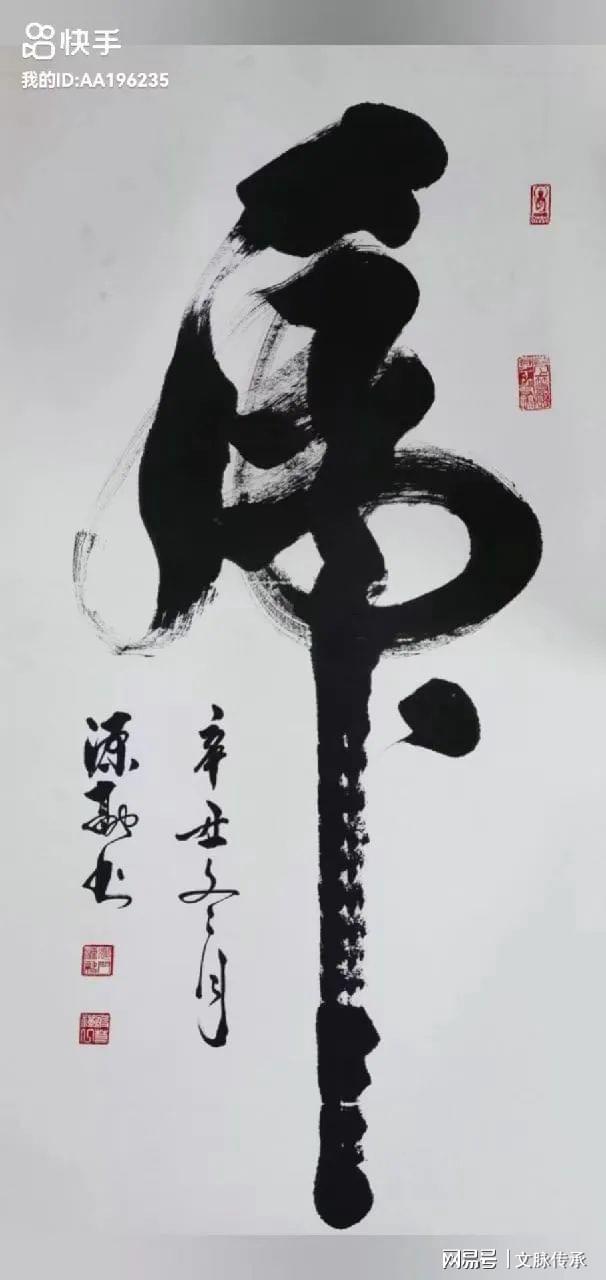 快手
我的ID:AA196235
虎
辛丑冬月
源勋书
网易号 | 文脉传承